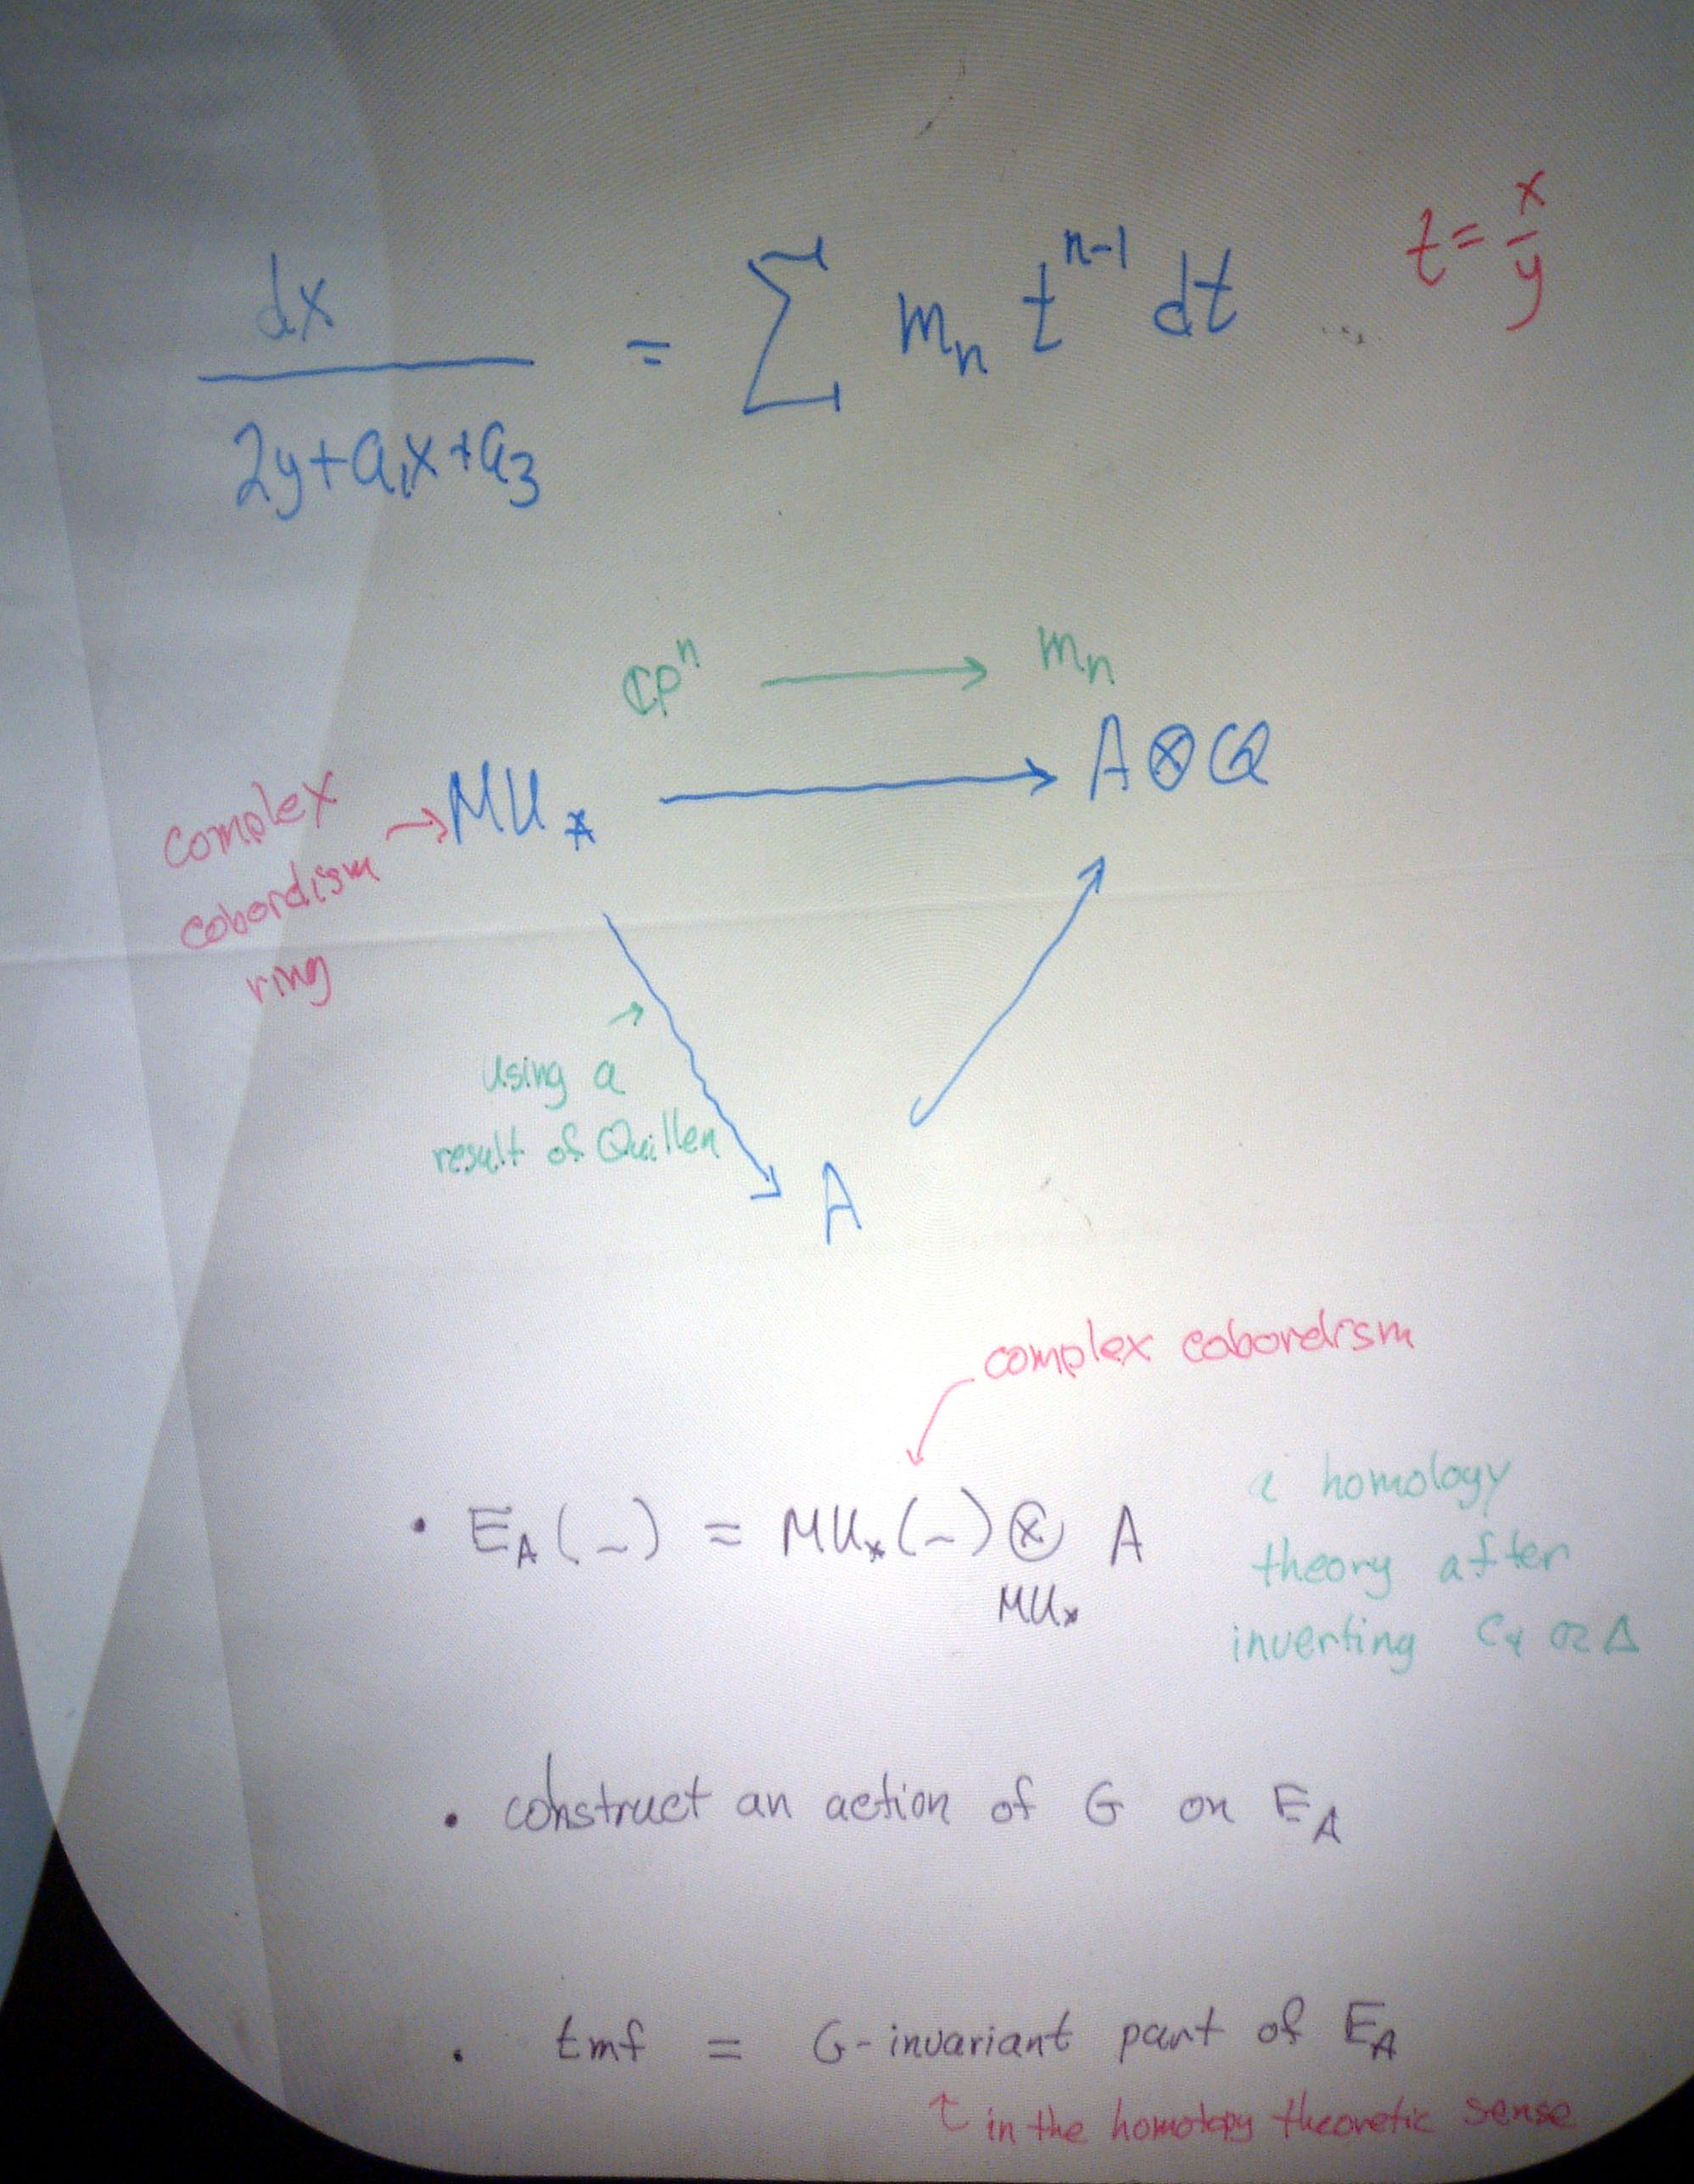 dx / 2y+a₁x+a₃ = Σ mₙ tⁿ⁻¹ dt
t = x/y
ℂPⁿ → mₙ
MU⁎ → A⊗Q
complex
cobordism →
ring
using a
result of Quillen
A
complex cobordism
• E_A(–) = MU⁎(–) ⊗ A
MU⁎
a homology
theory after
inverting c₄ or Δ
• construct an action of G on E_A
• tmf = G-invariant part of E_A
↑ in the homotopy theoretic sense